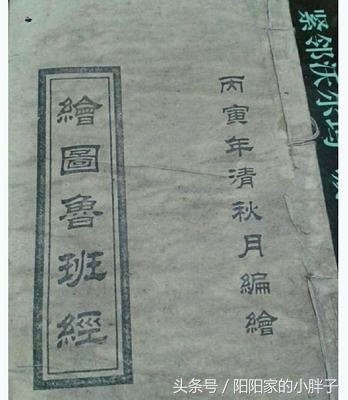 丙寅年清秋月編繪
繪圖魯班經
紧邻沃尔玛
头条号／阳阳家的小胖子